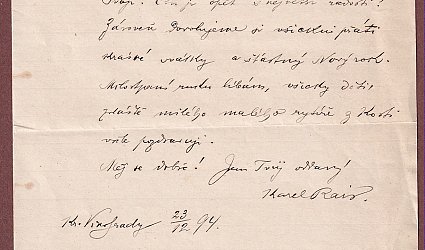 s největší radostí!
Zároveň dovolujeme si všichni přáti
krásné svátky a šťastný Nový rok.
Milostpaní ruku líbám, všecky děti,
zvláště milého malého rytíře z Kosti
vřele pozdravuji.
Měj se dobře! Jsem Tvůj oddaný
Karel Rais.
Kr. Vinohrady 23/12 94.